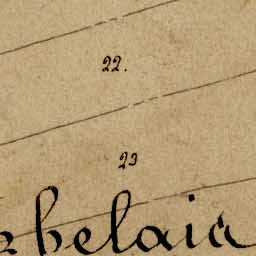 22.
23
belaia